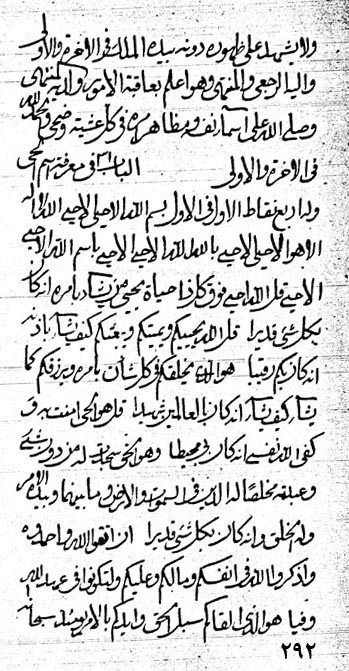 ولا يشهد على ظهوره دونه بيده الملك في الاخرة والاولى
واليه الرجعى والمنتهى وهو اعلم بعاقبة الامور واليه المنتهى
وصلى الله على اسماء نفسه ومظاهر امره في كل عشية وضحى
في الاخرة والاولى الباب في معرفة اسم المحيي
وله اربع نقاط الاول في الاول بسم الله الاحيى الاحيى الله لا اله
الا هو الاحيى الاحيى بالله الله الاحيى الاحيى باسم الله الاحيى
الاحيى قل الله احيى فوق كل ذا حياة يحيى من يشاء بامره انه كان
بكل شيء قديرا قل الله يحييكم ويميتكم ويبعثكم كيف يشاء باذنه
انه كان بكم رقيبا هو الذي يخلقكم في كل شأن بامره ويرزقكم كما
يشاء كيف يشاء انه كان بالعالمين شهيدا قل هو الحي امنت به و
كفى الله نفسي انه كان بي محيطا وهو الحي سجدت له من دون شيء
وعبدته مخلصا له الدين في السموات والارض وما بينهما وبيده الامر
وله الخلق وانه كان بكل شيء قديرا ان اتقوا الله واحمدوه
واذكروا الله في انفسكم وما لكم وعليكم ولتكونوا في عهد الله
وفيا هو الذي القاكم سبل الحق وايدكم بالامر سبحانه
٢٩٢